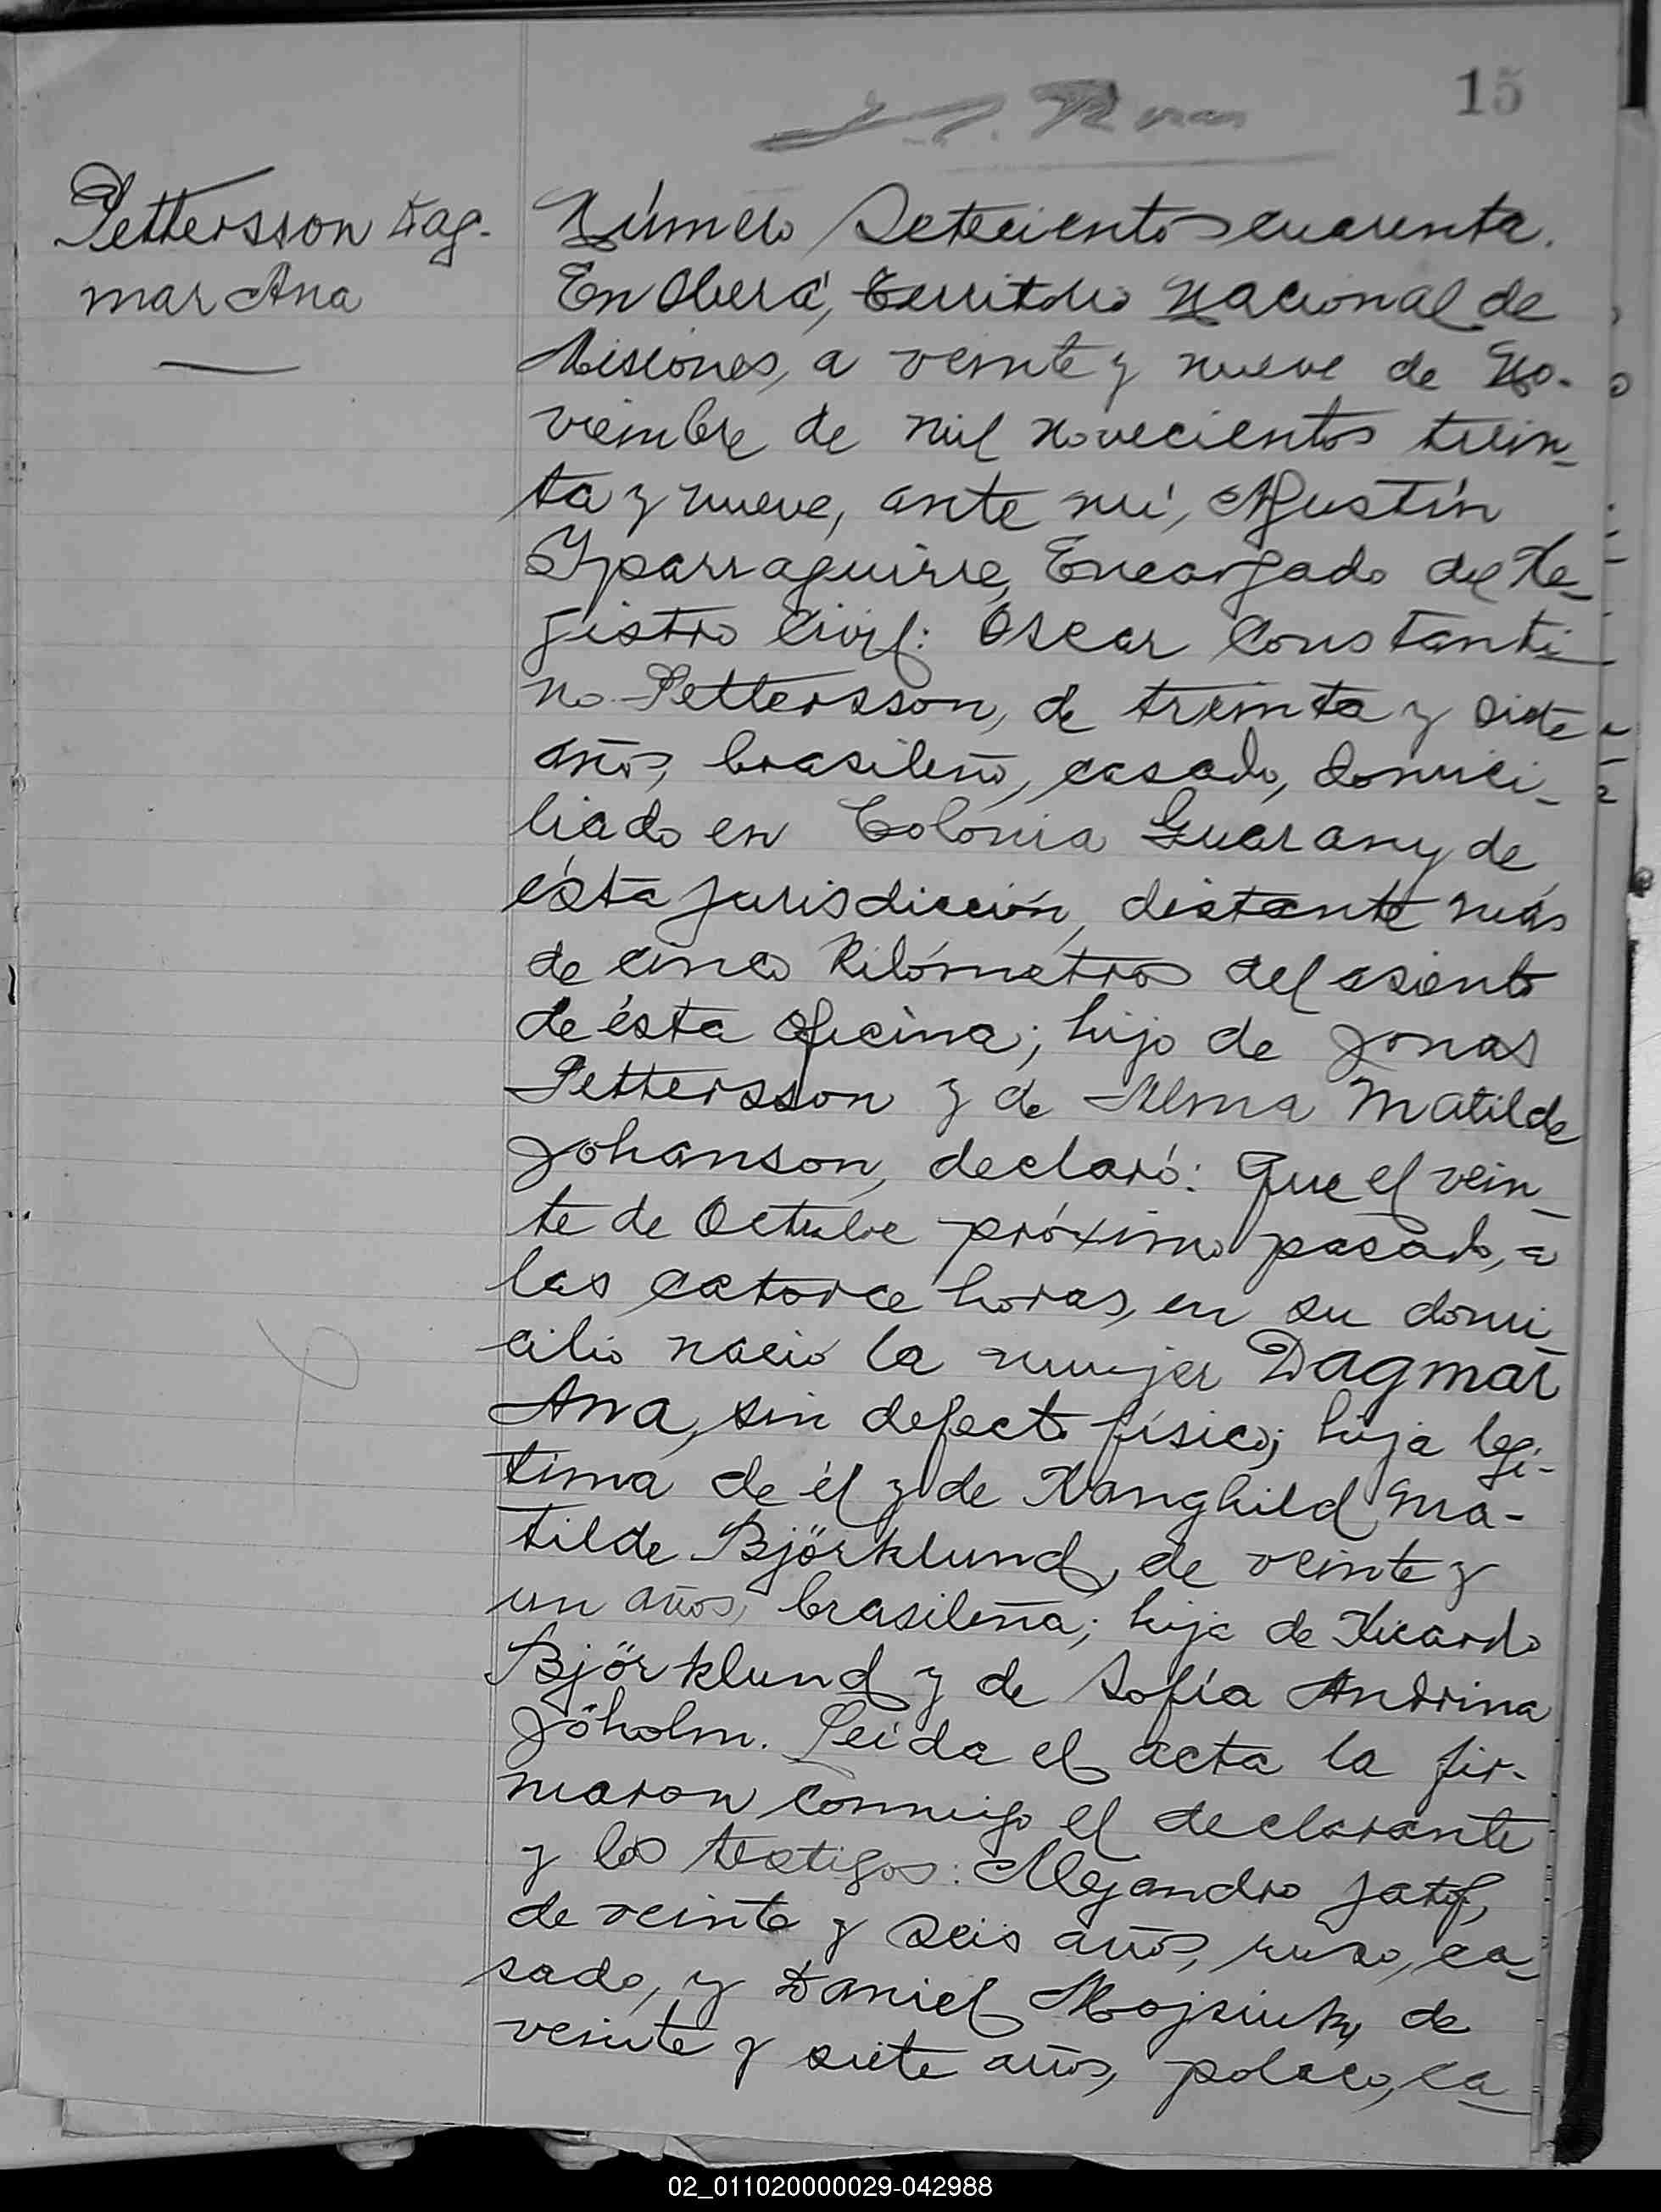 15
Pettersson Dag-
mar Ana
Número Setecientos cuarenta.
En Oberá, Territorio Nacional de
Misiones, a veinte y nueve de No-
viembre de mil novecientos trein-
ta y nueve, ante mí, Agustín
Yparraguirre, Encargado del Re-
gistro Civil: Oscar Constanti-
no Pettersson, de treinta y siete
años, brasileño, casado, domici-
liado en Colonia Guarany de
ésta jurisdicción, distante más
de cinco Kilómetros del asiento
de ésta oficina; hijo de Jonas
Pettersson y de Alma Matilde
Johanson, declaró: Que el vein-
te de Octubre próximo pasado, a
las catorce horas, en su domi
cilio nació la mujer Dagmar
Ana, sin defecto físico; hija legí-
tima de él y de Ranghild Ma-
tilde Björklund, de veinte y
un años, brasileña; hija de Ricardo
Björklund y de Sofía Andrina
Jöholm. Leída el acta la fir-
maron conmigo el declarante
y los testigos: Alejandro
de veinte y seis años, ruso, ca-
sado, y Daniel de
veinte y siete años, polaco, ca-
02_011020000029-042988